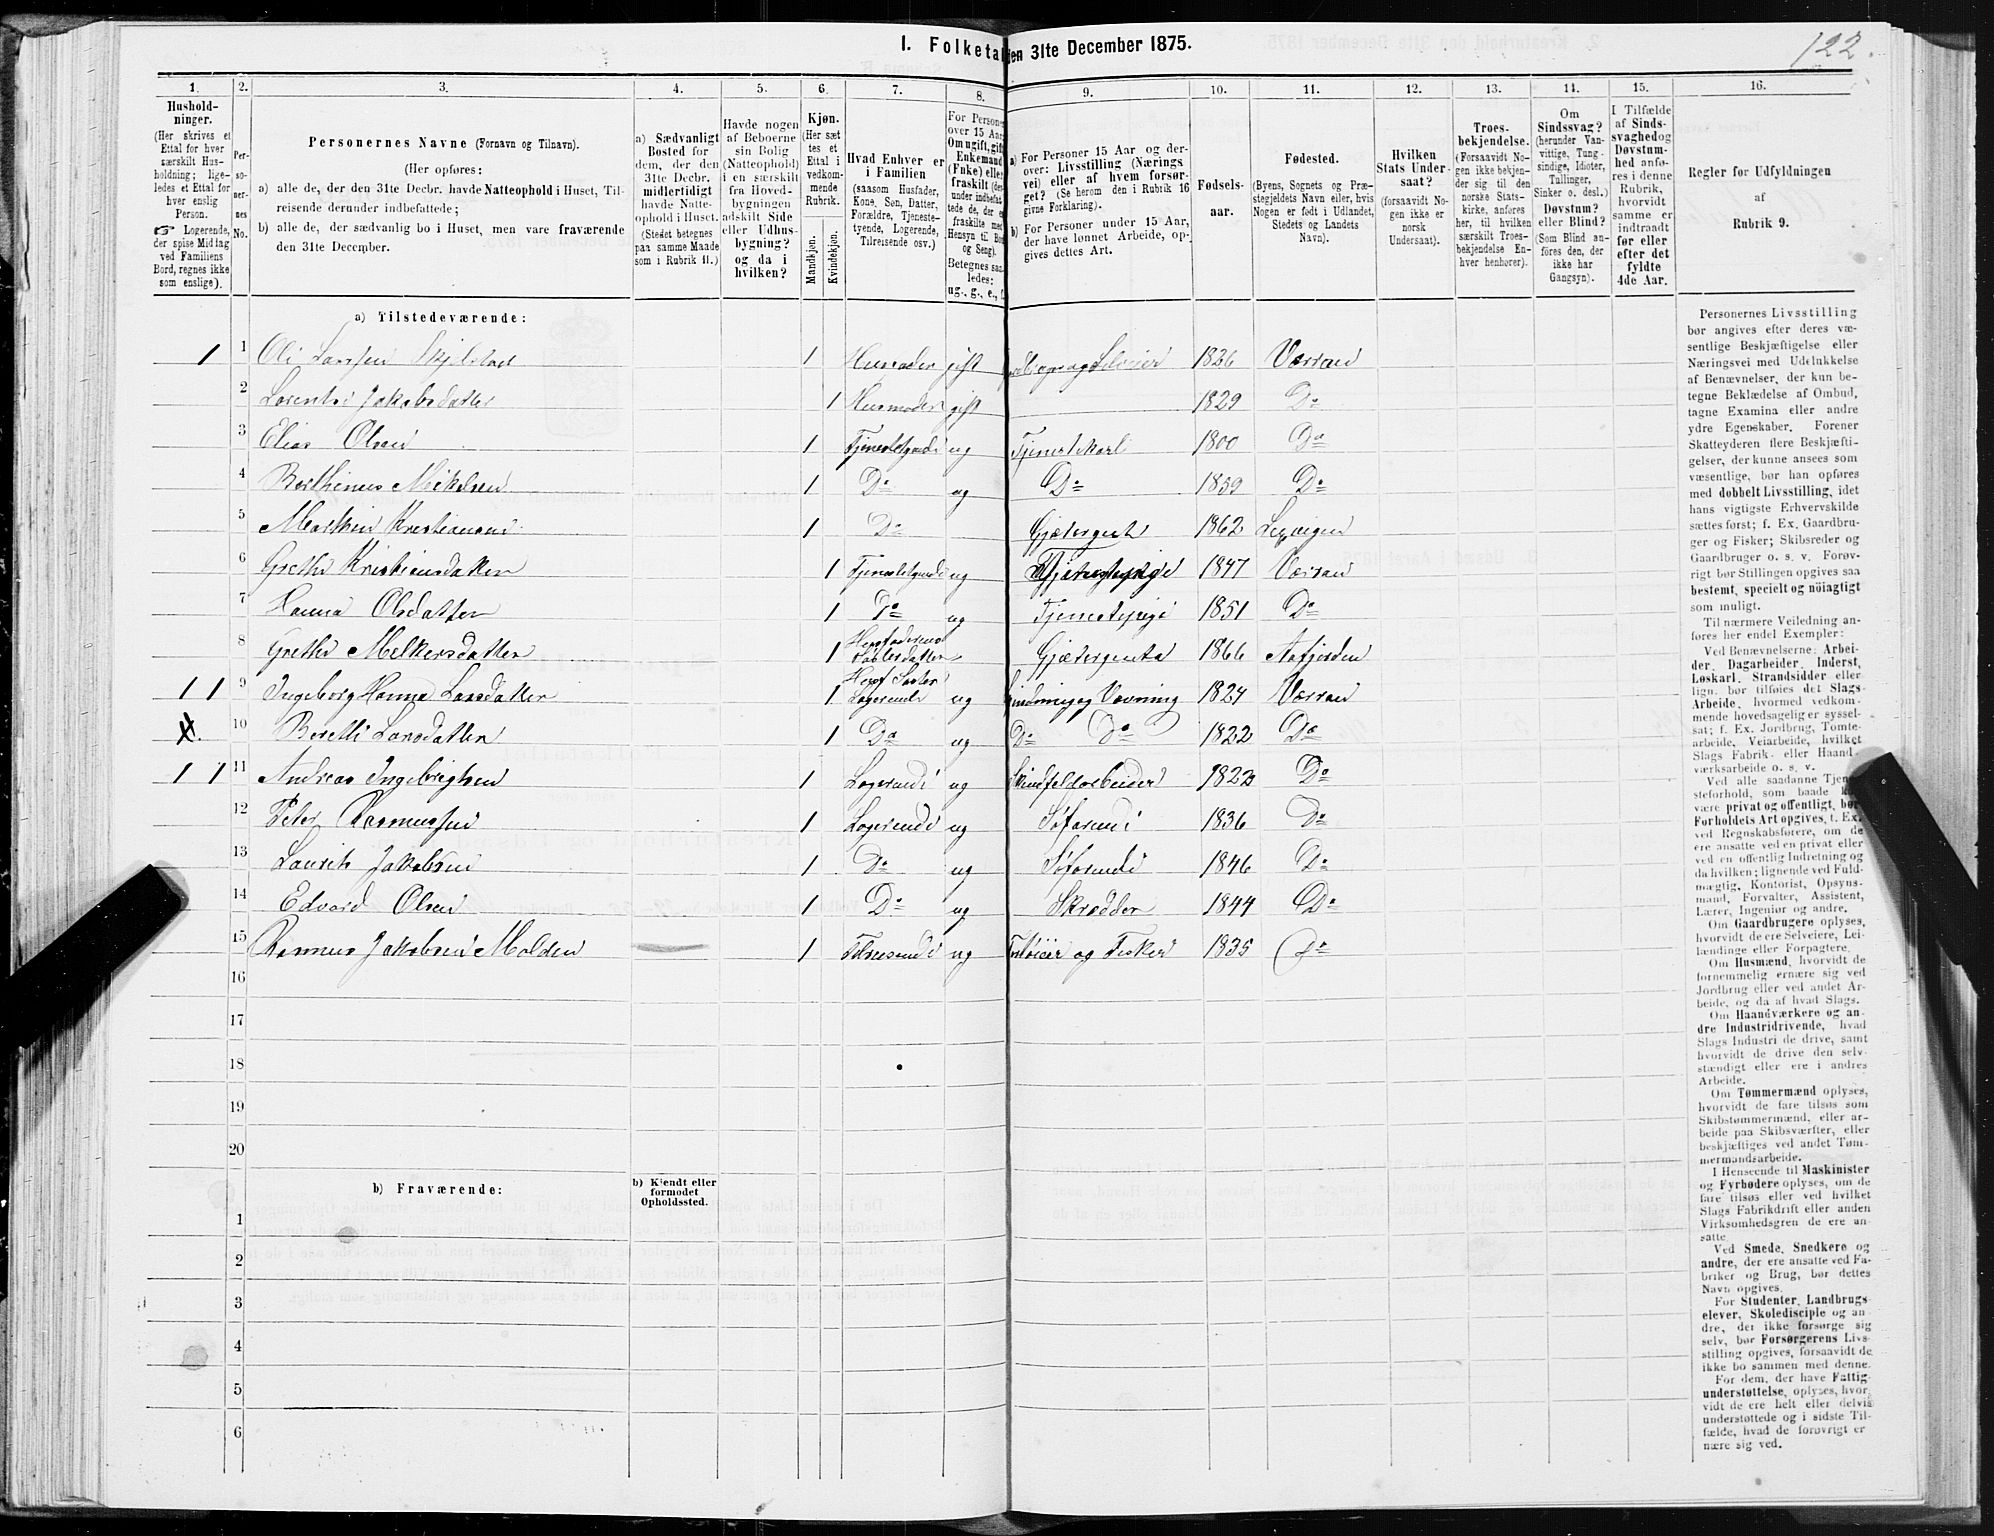 122.
1. Folketal den 31te December 1875.
1. 2. 3. 4. 5. 6. 7. 8. 9. 10. 11. 12. 13. 14. 15. 16.
Hushold-
ninger.
(Her skrives et
Ettal for hver
særskilt Hus-
holdning; lige-
ledes et Ettal for
hver enslig
Person.
Logerende,
der spise Middag
ved Familiens
Bord, regnes ikke
som enslige).
Per-
so-
ner-
nes
No.
Personernes Navne (Fornavn og Tilnavn).
(Her opføres:
a) alle de, der den 31te Decbr. havde Natteophold i Huset, Til-
reisende derunder indbefattede;
b) alle de, der sædvanlig bo i Huset, men vare fraværende
den 31te December.
a) Sædvanligt
Bosted for
dem, der den
31te Decbr.
midlertidigt
havde Natte-
ophold i Huset.
(Stedet betegnes
paa samme Maade
som i Rubrik 11.)
Havde nogen
af Beboerne
sin Bolig
(Natteophold)
i en særskilt
fra Hoved-
bygningen
adskilt Side
eller Udhus-
bygning?
og da i
hvilken?
Kjøn.
(Her sæt-
tes et
Ettal i
vedkom-
mende
Rubrik.
Mandkjøn.
Kvindekjøn.
Hvad Enhver er
i Familien
(saasom Husfader,
Kone, Søn, Datter,
Forældre, Tjeneste-
tyende, Logerende,
Tilreisende osv.)
For Persone
over 15 Aar
Om ugift, gift
Enkemand
(Enke) elle
fraskilt
Betegnes saa
ledes:
ug., g., e., f.
a) For Personer 15 Aar og der-
over: Livsstilling (Nærings
vei) eller af hvem forsør-
get? (Se herom den i Rubrik 16
givne Forklaring).
b) For Personer under 15 Aar,
der have lønnet Arbeide, op-
gives dettes Art.
Fødsels-
aar.
Fødested.
(Byens, Sognets og Præ-
stegjeldets Navn eller, hvis
Nogen er født i Udlandet,
Stedets og Landets
Navn).
Hvilken
Stats Under-
saat?
(forsaavidt No-
gen ikke er
norsk
Undersaat).
Troes-
bekjendelse.
(Forsaavidt No-
gen ikke bekjen-
der sig til den
norske Stats-
kirke, anføres
her, til hvilken
særskilt Troes-
bekjendelse En-
hver henhører).
Om
Sindssvag?
(herunder Van-
vittige, Tung-
sindige, Idioter,
Tullinger,
Sinker o. desl.)
Døvstum?
eller Blind?
(Som Blind an-
føres den, der
ikke har
Gangsyn).
I Tilfælde
af Sinds-
svaghed og
Døvstum-
hed anfø-
res i denne
Rubrik,
hvorvidt
samme er
indtraadt
før eller
efter det
fyldte
4de Aar.
Regler for Udfyldningen
af
Rubrik 9.
a) Tilstedeværende:
1 1 Oli Larssen Skjelstad 1 Husfader gift Selveier 1826 Værran
2 Lorentse Jakobsdatter 1 Husmoder gift 1829 Do
3 Elias Olsen 1 ug Tjenestekarl 1800 Do
4 Berthinus Mikelsen 1 Do ug Do 1859 Do
5 Martin Kristiansen 1 Do Gjætergut 1862 Lexvigen
6 Grethe Kristiansdatter 1 ug 1847 Værran
7 Hanna Olsdatter 1 Do ug Tjenestepige 1851 Do
8 Grethe Melkersdatter 1 Gjætergenta 1866 Aafjorden
1 1 9 Ingeborg Hanna Larsdatter 1 Logerende ug og Vævning 1824 Værran
10 Berethe Larsdatter 1 Do ug Do Do 1822 Do
1 1 11 Andreas Ingebrigtsen 1 Logerende ug Skindfeldarbeider 1822 Do
12 Peter Rasmussen 1 Logerende ug Søfarende 1836 Do
13 Laurits Jakobsen 1 Do ug Søfarende 1846 Do
14 Edvard Olsen 1 Do ug Skrædder 1844 Do
15 Rasmus Jakobsen Molden 1 Tilreisende ug og Fisker 1835 Do
16
17
18
19
20
b) Fraværende:
b) Kjendt eller
formodet
Opholdssted.
1
2
3
4
5
6
Personernes Livsstilling
bør angives efter deres væ-
sentlige Beskjæftigelse eller
Næringsvei med Udelukkelse
af Benævnelser, der kun be-
tegne Beklædelse af Ombud,
tagne Examina eller andre
ydre Egenskaber. Forener
Skatteyderen flere Beskjæfti-
gelser, der kunne ansees som
væsentlige, bør han opføres
med dobbelt Livsstilling, idet
hans vigtigste Erhvervskilde
sættes først; f. Ex. Gaardbru-
ger og Fisker; Skibsreder og
Gaardbruger o. s. v. Forøv-
rigt bør Stillingen opgives saa
bestemt, specielt og nöiagtigt
som muligt.
Til nærmere Veiledning an-
føres her endel Exempler:
Ved Benævnelserne: Arbei-
der, Dagarbeider, Inderst,
Løskarl, Strandsidder eller
lign. bør tilføies det Slags
Arbeide, hvormed vedkom-
mende hovedsagelig er syssel-
sat; f. Ex. Jordbrug, Tomte-
arbeide, Veiarbeide, hvilket
Slags Fabrik- eller Haand-
værksarbeide o. s. v.
Ved alle saadanne Tjene-
steforhold, som baade kan
være privat og offentligt, bør
Forholdets Art opgives, t. Ex.
ved Regnskabsførere, om de
ere ansatte ved en privat eller
ved en offentlig Indretning og
da hvilken; lignende ved Fuld-
mægtig, Kontorist, Opsyns-
mand, Forvalter, Assistent,
Lærer, Ingeniør og andre.
Om Gaardbrugere oplyses,
hvorvidt de ere Selveiere, Lei-
lændinge eller Forpagtere.
Om Husmænd, hvorvidt de
fornemmelig ernære sig ved
Jordbrug eller ved andet Ar-
beide, og da af hvad Slags.
Om Haandværkere og an-
dre Industridrivende, hvad
Slags Industri de drive, samt
hvorvidt de drive den selv-
stændigt eller ere i andres
Arbeide.
Om Tømmermænd oplyses,
hvorvidt de fare tilsøs som
Skibstømmermænd, eller ar-
beide paa Skibsværfter, eller
beskjæftiges ved andet Tøm-
mermandsarbeide.
I Henseende til Maskinister
og Fyrbødere oplyses, om de
fare tilsøs eller ved hvilket
Slags Fabrikdrift eller anden
Virksomhedsgren de ere an-
satte.
Ved Smede, Snedkere og
andre, der ere ansatte ved Fa-
briker og Brug, bør dettes
Navn opgives.
For Studenter, Landbrugs-
elever, Skoledisciple og an-
dre, der ikke forsørge sig
selv, bør Forsørgerens Livs-
stilling opgives, forsaavidt de
ikke bo sammen med denne.
For dem, der have Fattig-
understøttelse, oplyses, hvor-
vidt de ere helt eller delvis
understøttede og i sidste Til-
fælde, hvad de forøvrigt er-
nære sig ved.